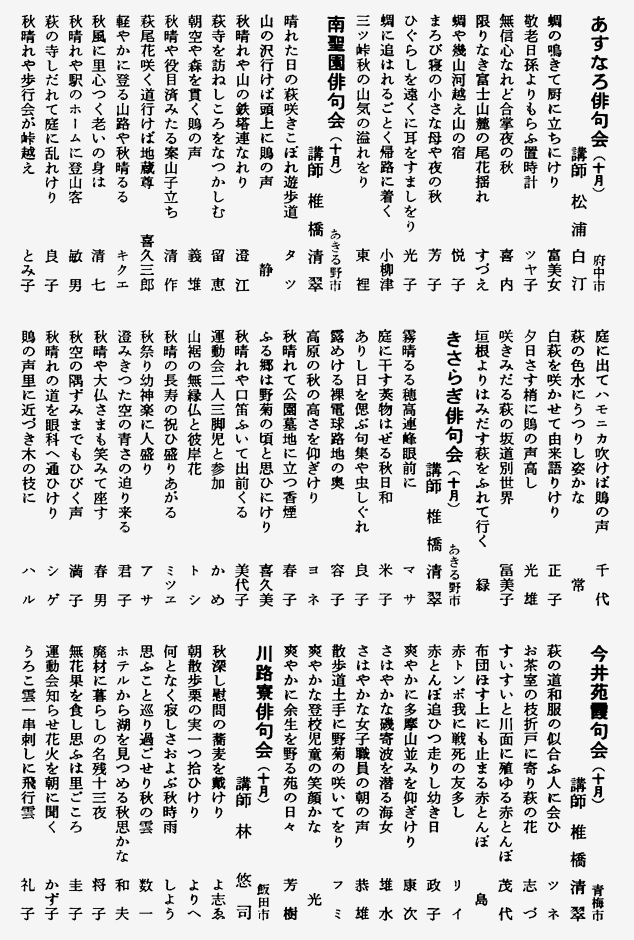 あすなろ俳句会（十月）
府中市
講師 松浦白汀
蜩の鳴きて厨に立ちにけり 富美女
敬老日孫よりもらふ置時計 ツヤ子
無信心なれど合掌夜の秋 喜内
限りなき富士山麓の尾花揺れ すづえ
蜩や幾山河越え山の宿 悦子
まろび寝の小さな母や夜の秋 芳子
ひぐらしを遠くに耳をすましをり 光子
蜩に追はれるごとく帰路に着く 小柳津
三ツ峠秋の山気の溢れをり 東裡
南聖園俳句会（十月）
あきる野市
講師 椎橋清翠
晴れた日の萩咲きこぼれ遊歩道 タツ
山の沢行けば頭上に鵙の声 静
秋晴れや山の鉄塔連なれり 澄江
萩寺を訪ねしころをなつかしむ 留恵
朝空や森を貫く鵙の声 義雄
秋晴や役目済みたる案山子立ち 清作
萩尾花咲く道行けば地蔵尊 喜久三郎
軽やかに登る山路や秋晴るる キクエ
秋風に里心つく老いの身は 清七
秋晴れや駅のホームに登山客 敏男
萩の寺しだれて庭に乱れけり 良子
秋晴れや歩行会が峠越え とみ子
庭に出てハモニカ吹けば鵙の声 千代
萩の色水にうつりし姿かな 常
白萩を咲かせて由来語りけり 正子
夕日さす梢に鵙の声高し 光雄
咲きみだる萩の坂道別世界 冨美子
垣根よりはみだす萩をふれて行く 緑
きさらぎ俳句会（十月）
あきる野市
講師 椎橋清翠
霧晴るる穂高連峰眼前に マサ
庭に干す莢物はぜる秋日和 米子
ありし日を偲ぶ句集や虫しぐれ 良子
露めける裸電球路地の奥 容子
高原の秋の高さを仰ぎけり ヨネ
秋晴れて公園墓地に立つ香煙 春子
ふる郷は野菊の頃と思ひにけり 喜久美
秋晴れや口笛ふいて出前くる 美代子
運動会二人三脚児と参加 かめ
山裾の無縁仏と彼岸花 トシ
秋晴の長寿の祝ひ盛りあがる ミツヱ
秋祭り幼神楽に人盛り アサ
澄みきつた空の青さの迫り来る 君子
秋晴や大仏さまも笑みて座す 春男
秋空の隅ずみまでもひびく声 満子
秋晴れの道を眼科へ通ひけり シゲ
鵙の声里に近づき木の枝に ハル
今井苑霞句会（十月）
青梅市
講師 椎橋清翠
萩の道和服の似合ふ人に会ひ ツネ
お茶室の枝折戸に寄り萩の花 志づ
すいすいと川面に殖ゆる赤とんぼ 茂代
布団ほす上にも止まる赤とんぼ 島
赤トンボ我に戦死の友多し リイ
赤とんぼ追ひつ走りし幼き日 政子
爽やかに多摩山並みを仰ぎけり 康次
さはやかな磯寄波を潜る海女 雄水
さはやかな女子職員の朝の声 恭雄
散歩道土手に野菊の咲いてをり フミ
爽やかな登校児童の笑顔かな 光
爽やかに余生を野る苑の日々 芳樹
川路寮俳句会（十月）
飯田市
講師 林悠司
秋深し慰問の蕎麦を戴けり よ志ゑ
朝散歩栗の実一つ拾ひけり よりへ
何となく寂しさおよぶ秋時雨 しよう
思ふこと巡り過ごせり秋の雲 数一
ホテルから湖を見つめる秋思かな 和夫
廃材に暮らしの名残十三夜 将子
無花果を食し思ふは里ごころ 圭子
運動会知らせ花火を朝に聞く かず子
うろこ雲一串刺しに飛行雲 礼子